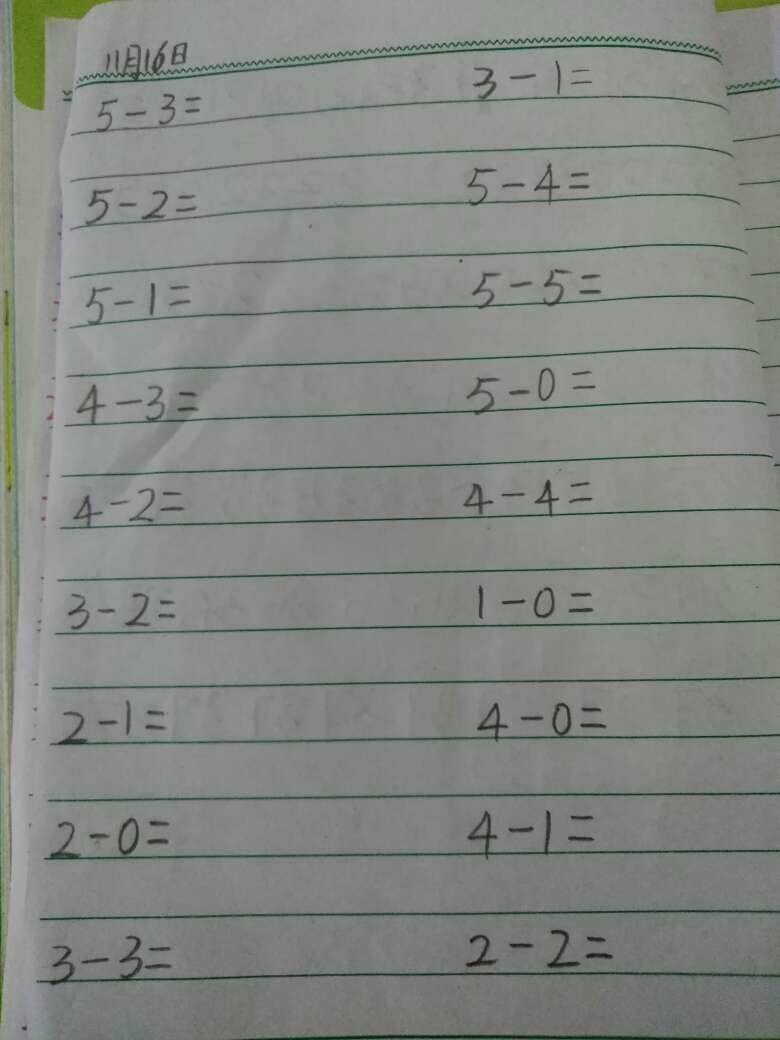 11月16日
5-3= 3-1=
5-2= 5-4=
5-1= 5-5=
4-3= 5-0=
4-2= 4-4=
3-2= 1-0=
2-1= 4-0=
2-0= 4-1=
3-3= 2-2=